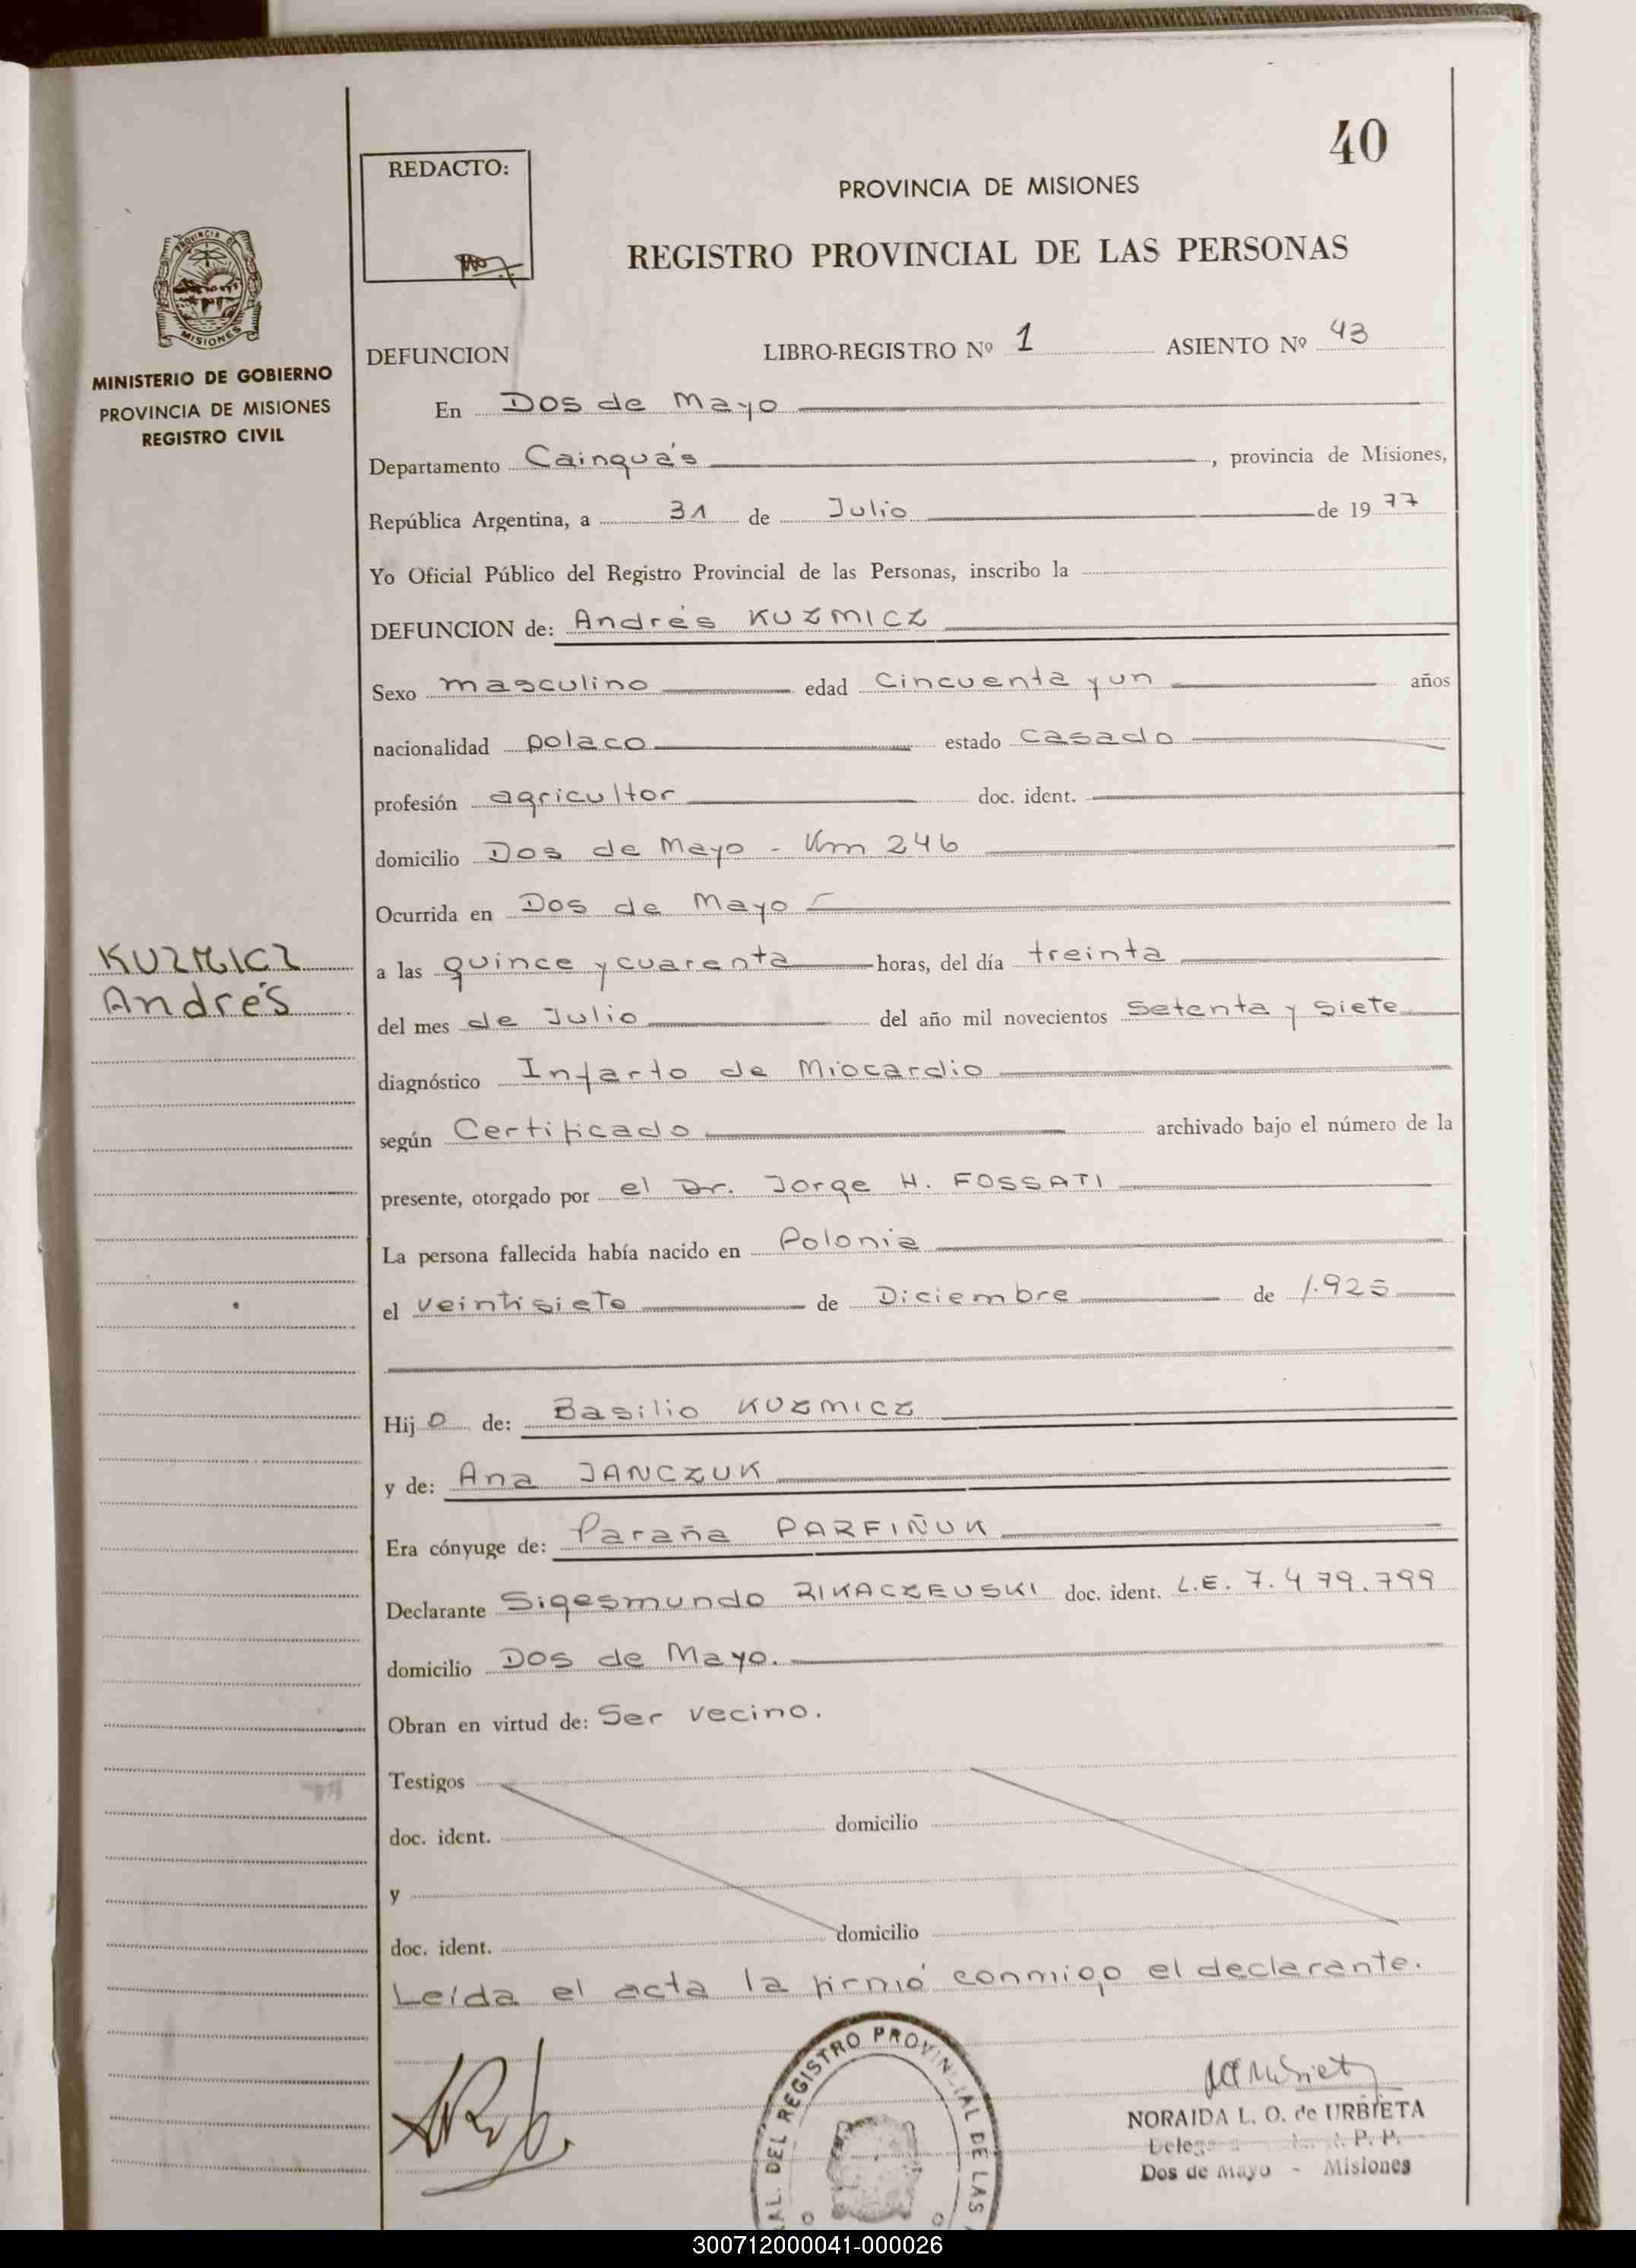 40
REDACTO:
PROVINCIA DE MISIONES
REGISTRO PROVINCIAL DE LAS PERSONAS
PROVINCIA DE
MISIONES
MINISTERIO DE GOBIERNO
PROVINCIA DE MISIONES
REGISTRO CIVIL
DEFUNCION LIBRO-REGISTRO Nº 1 ASIENTO Nº 43
En Dos de Mayo
Departamento Cainguás, provincia de Misiones,
República Argentina, a 31 de Julio de 1977
Yo Oficial Público del Registro Provincial de las Personas, inscribo la
DEFUNCION de: Andrés KUZMICZ
Sexo masculino edad Cincuenta y un años
nacionalidad polaco estado casado
profesión agricultor doc. ident.
domicilio Dos de Mayo - Km 246
Ocurrida en Dos de Mayo
KUZMICZ
Andrés
a las quince y cuarenta horas, del día treinta
del mes de Julio del año mil novecientos setenta y siete
diagnóstico Infarto de Miocardio
según Certificado archivado bajo el número de la
presente, otorgado por el Dr. Jorge H. FOSSATI
La persona fallecida había nacido en Polonia
el veintisiete de Diciembre de 1.925
Hijo de: Basilio KUZMICZ
y de: Ana JANCZUK
Era cónyuge de: Paraña PARFIÑUK
Declarante Sigesmundo RIKACZEUSKI doc. ident. L.E. 7.479.799
domicilio Dos de Mayo.
Obran en virtud de: Ser vecino.
Testigos
doc. ident. domicilio
y
doc. ident. domicilio
Leída el acta la firmó conmigo el declarante.
AL. DEL REGISTRO PROVINCIAL DE LAS
NORAIDA L. O. de URBIETA
Dos de Mayo - Misiones
300712000041-000026